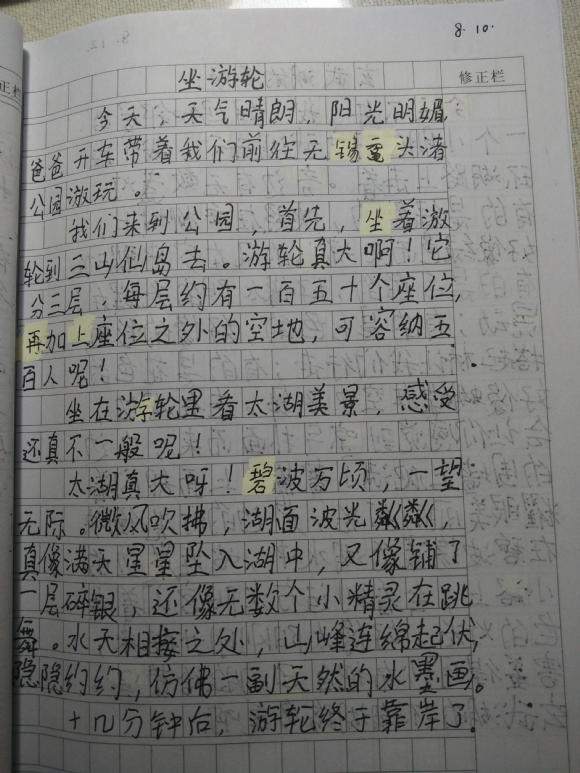 8.10.
坐游轮
修正栏
今天，天气晴朗，阳光明媚，
爸爸开车带着我们前往无锡鼋头渚
公园游玩。
我们来到公园，首先，坐着游
轮到三山仙岛去。游轮真大啊！它
分三层，每层约有一百五十个座位，
再加上座位之外的空地，可容纳五
百人呢！
坐在游轮里看太湖美景，感受
还真不一般呢！
太湖真大呀！碧波万顷，一望
无际。微风吹拂，湖面波光粼粼，
真像满天星星坠入湖中，又像铺了
一层碎银，还像无数个小精灵在跳
舞。水天相接之处，山峰连绵起伏，
隐隐约约，仿佛一副天然的水墨画。
十几分钟后，游轮终于靠岸了。